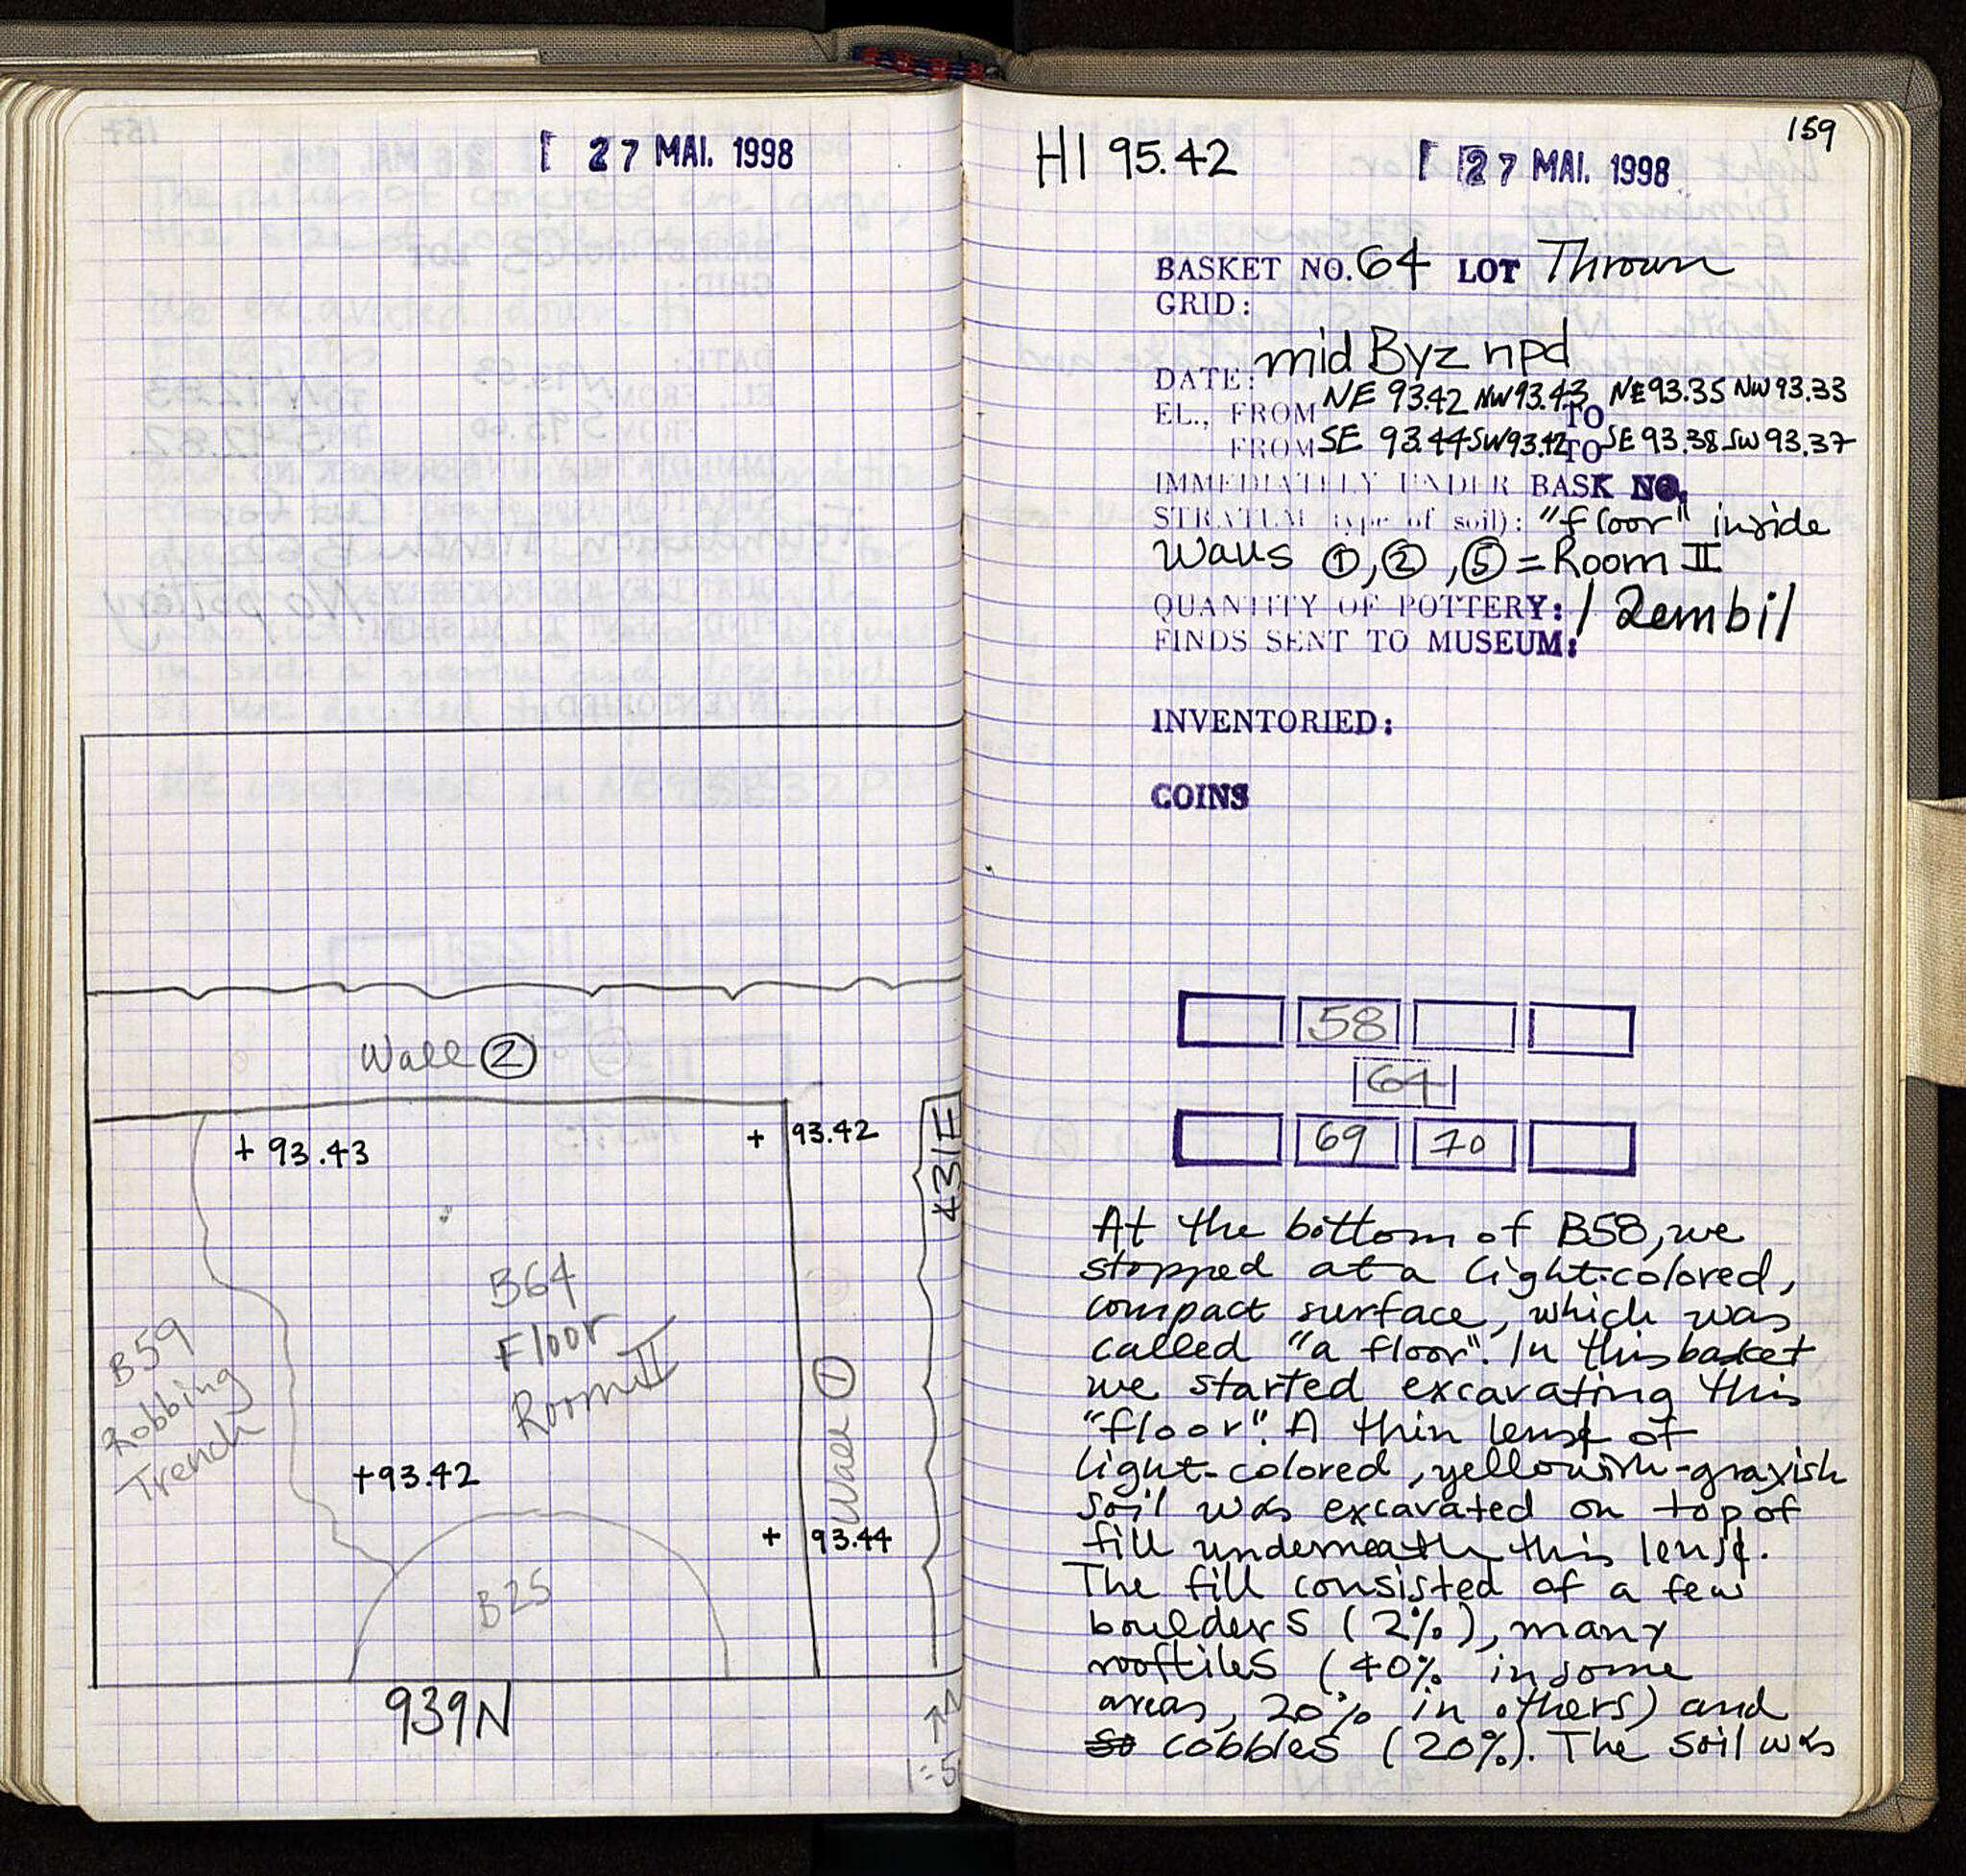 27 MAI. 1998
Wall ②
+ 93.43
+ 93.42
431E
B64
Floor
Room II
B59
Robbing
Trench
Wall ①
+93.42
+ 93.44
B25
939N
N
1:50
159
HI 95.42
27 MAI. 1998
BASKET NO. 64 LOT Thrown
GRID:
DATE: mid Byz npd
EL., FROM NE 93.42 NW 93.43 TO NE 93.35 NW 93.33
FROM SE 93.44 SW 93.42 TO SE 93.38 SW 93.37
IMMEDIATELY UNDER BASK NO.
STRATUM (type of soil): "floor" inside
Walls ①, ②, ⑤ = Room II
QUANTITY OF POTTERY: 1 Zembil
FINDS SENT TO MUSEUM:
INVENTORIED:
COINS
58
64
69 70
At the bottom of B58, we
stopped at a light-colored,
compact surface, which was
called "a floor". In this basket
we started excavating this
"floor". A thin lens of
light-colored, yellowish-grayish
soil was excavated on top of
fill underneath this lens.
The fill consisted of a few
boulders (2%), many
rooftiles (40% in some
areas, 20% in others) and
so cobbles (20%). The soil was